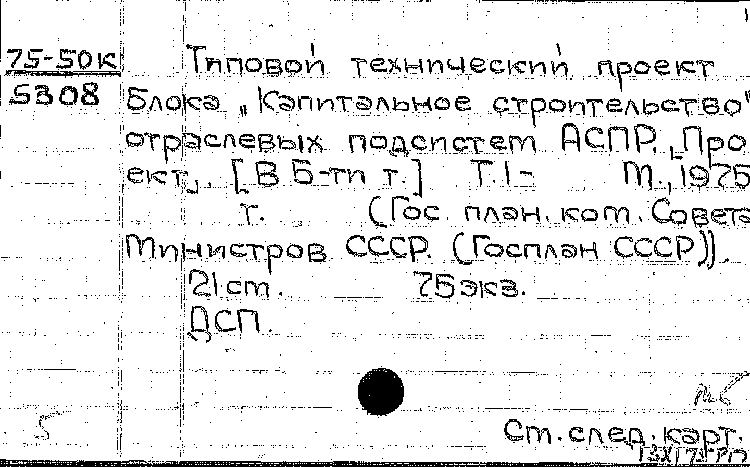 75-50к Типовой технический проект
5308 блока „Капитальное строительство"
отраслевых подсистем АСПР. [Про
ект]. [В 5-ти т.] Т. 1- М., 1975
т. (Гос план. ком. Совета
Министров СССР. (Госплан СССР)).
21 см. 75 экз.
ДСП.
5
См. след. карт.